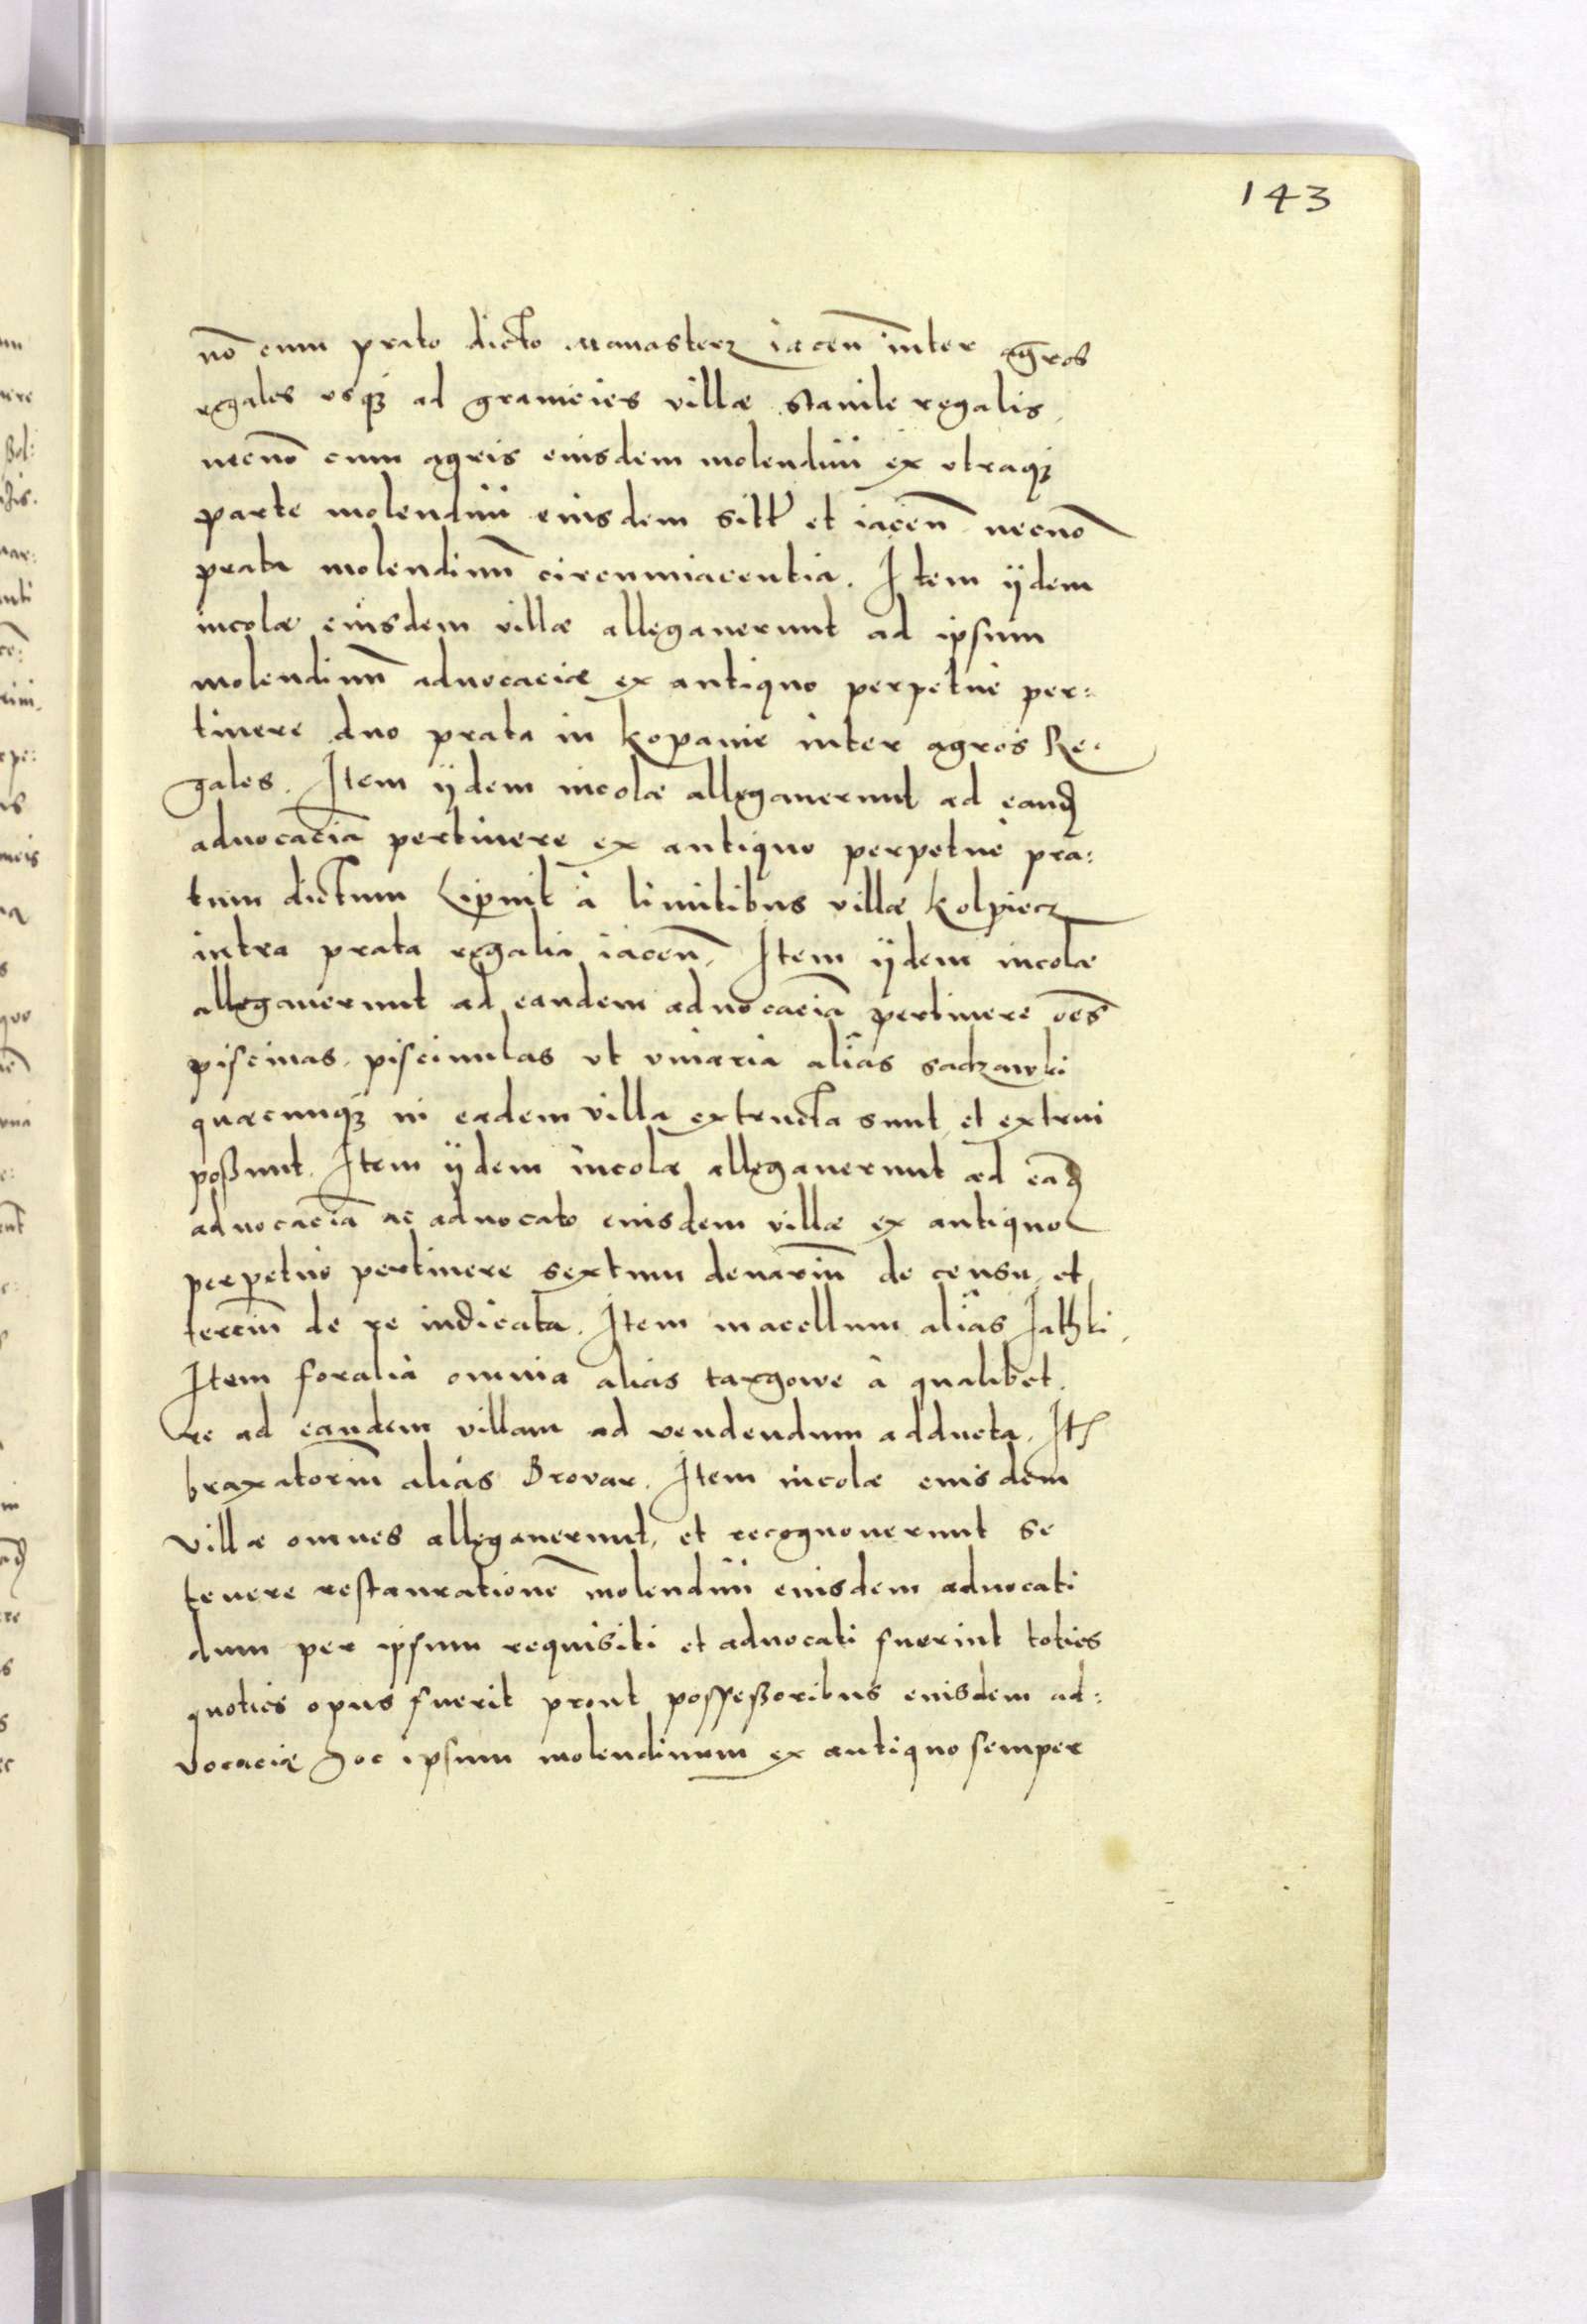 143
nō cum prato dicto Manasterz iacen̄ inter agros
regales usq̨ ad granicies villæ Stanile regalis,
necnō cum agris eiusdem molendini ex utraq̨
parte molendini eiusdem sitt et iacen̄ necnō
prata molendinū circumiacentia. Item ijdem
incolæ eiusdem villæ allegaverunt ad ipsum
molendinū advocaciæ ex antiquo perpetue per:
tinere duo prata in Kopanie inter agros Re:
gales. Item ijdem incolæ allegaverunt ad eand
advocaciā pertinere ex antiquo perpetue pra:
tum dictum Lipnit à limitibus villæ Kolpiecz
intra prata regalia iacen̄, Item ijdem incolæ
allegaverunt ad eandem advocaciā pertinere oēs
piscinas, piscinulas ut vivaria aliâs sadzawki
quæcunq̨ in eadem villa extructa sunt, et extrui
poßunt. Item ijdem incolæ allegaverunt ad eād
advocaciā ac advocato eiusdem villæ ex antiquo
perpetuo pertinere sextum denariū de censu, et
terciū de re iudicata. Item macellum aliâs Jathki,
Item foralia omnia aliàs targowe à qualibet
re ad eandem villam ad vendendum adducta. Itē
braxatoriū aliàs Brovar. Item incolæ eiusdem
villæ omnes allegaverunt, et recognoverunt se
tenere restaurationē molendini eiusdem advocati
dum per ipsum requisiti et advocati fuerint toties
quoties opus fuerit prout posseßoribus eiusdem ad:
vocaciæ hoc ipsum molendinum ex antiquo semper